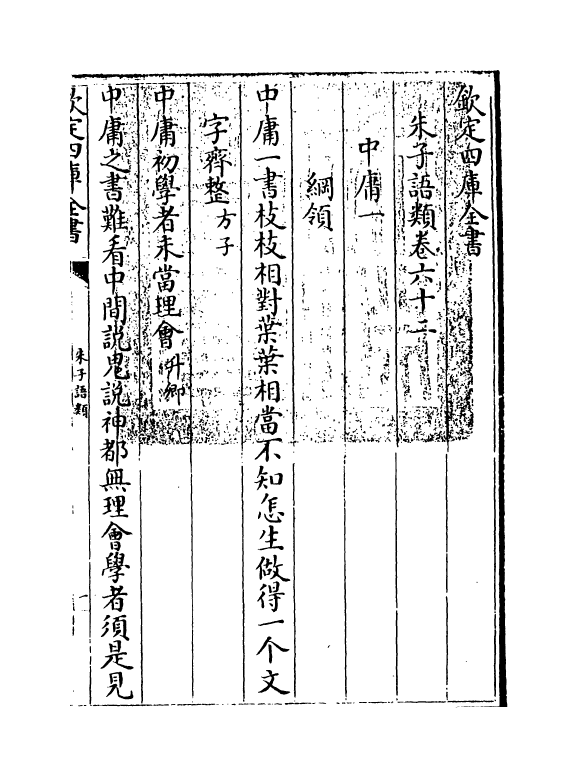 欽定四庫全書
朱子語類卷六十二
中庸一
綱領
中庸一書枝枝相對葉葉相當不知怎生做得一个文
字齊整方子
中庸初學者未當理會升卿
中庸之書難看中間說鬼說神都無理會學者須是見
欽定四庫全書
朱子語類
一